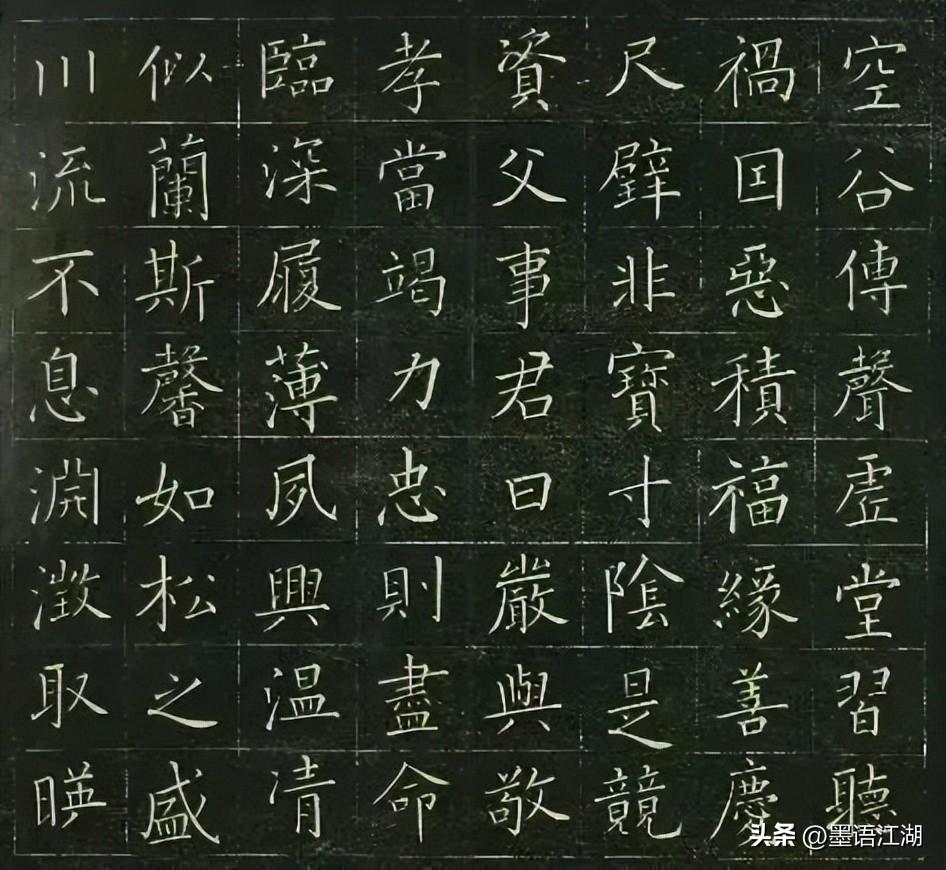 空谷傳聲虛堂習聽
禍因惡積福緣善慶
尺璧非寶寸陰是競
資父事君曰嚴與敬
孝當竭力忠則盡命
臨深履薄夙興温凊
似蘭斯馨如松之盛
川流不息淵澂取暎
头条 @墨语江湖